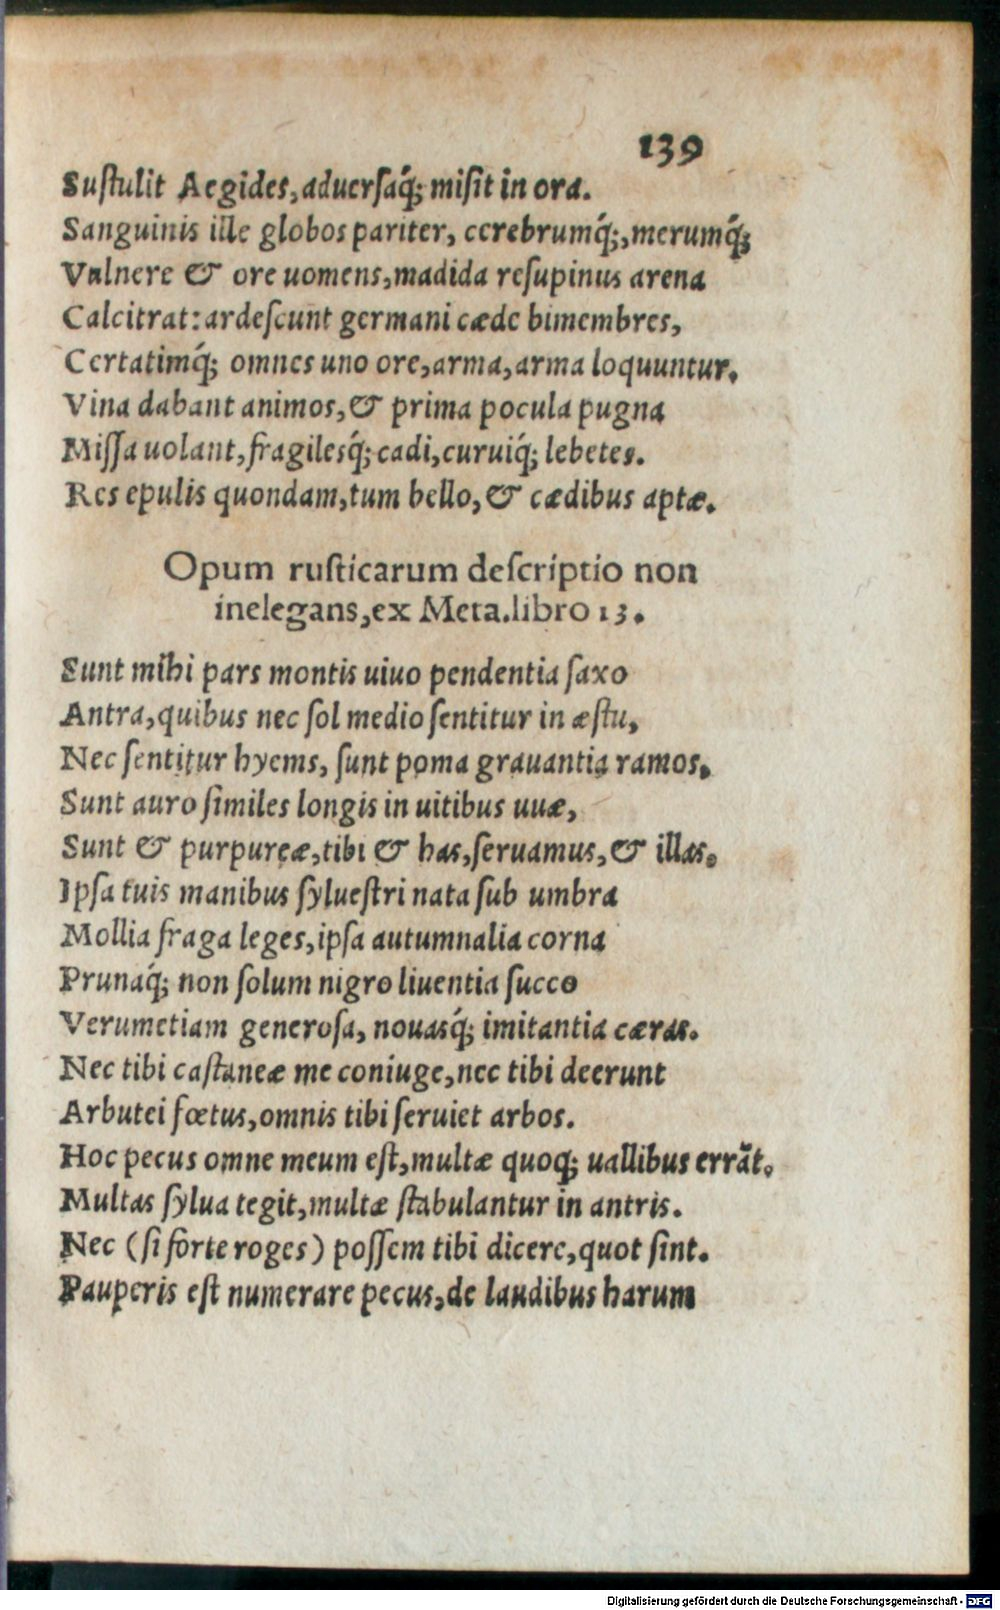 139
Suſtulit Aegides, aduerſaq́; miſit in ora.
Sanguinis ille globos pariter, cerebrumq́;, merumq́;
Vulnere & ore uomens, madida reſupinus arena
Calcitrat: ardeſcunt germani cæde bimembres,
Certatimq́; omnes uno ore, arma, arma loquuntur.
Vina dabant animos, & prima pocula pugna
Miſſa uolant, fragilesq́; cadi, curuiq́; lebetes.
Res epulis quondam, tum bello, & cædibus aptæ.
Opum ruſticarum deſcriptio non
inelegans, ex Meta. libro 13.
Sunt mihi pars montis uiuo pendentia ſaxo
Antra, quibus nec ſol medio ſentitur in æſtu,
Nec ſentitur hyems, ſunt poma grauantia ramos.
Sunt auro ſimiles longis in uitibus uuæ,
Sunt & purpureæ, tibi & has, ſeruamus, & illas.
Ipſa tuis manibus ſylueſtri nata ſub umbra
Mollia fraga leges, ipſa autumnalia corna
Prunaq́; non ſolum nigro liuentia ſucco
Verumetiam generoſa, nouasq́; imitantia cæras.
Nec tibi caſtaneæ me coniuge, nec tibi deerunt
Arbutei fœtus, omnis tibi ſeruiet arbos.
Hoc pecus omne meum eſt, multæ quoq; uallibus errãt.
Multas ſylua tegit, multæ ſtabulantur in antris.
Nec (ſi forte roges) poſſem tibi dicere, quot ſint.
Pauperis eſt numerare pecus, de laudibus harum
Digitalisierung gefördert durch die Deutsche Forschungsgemeinschaft - DFG